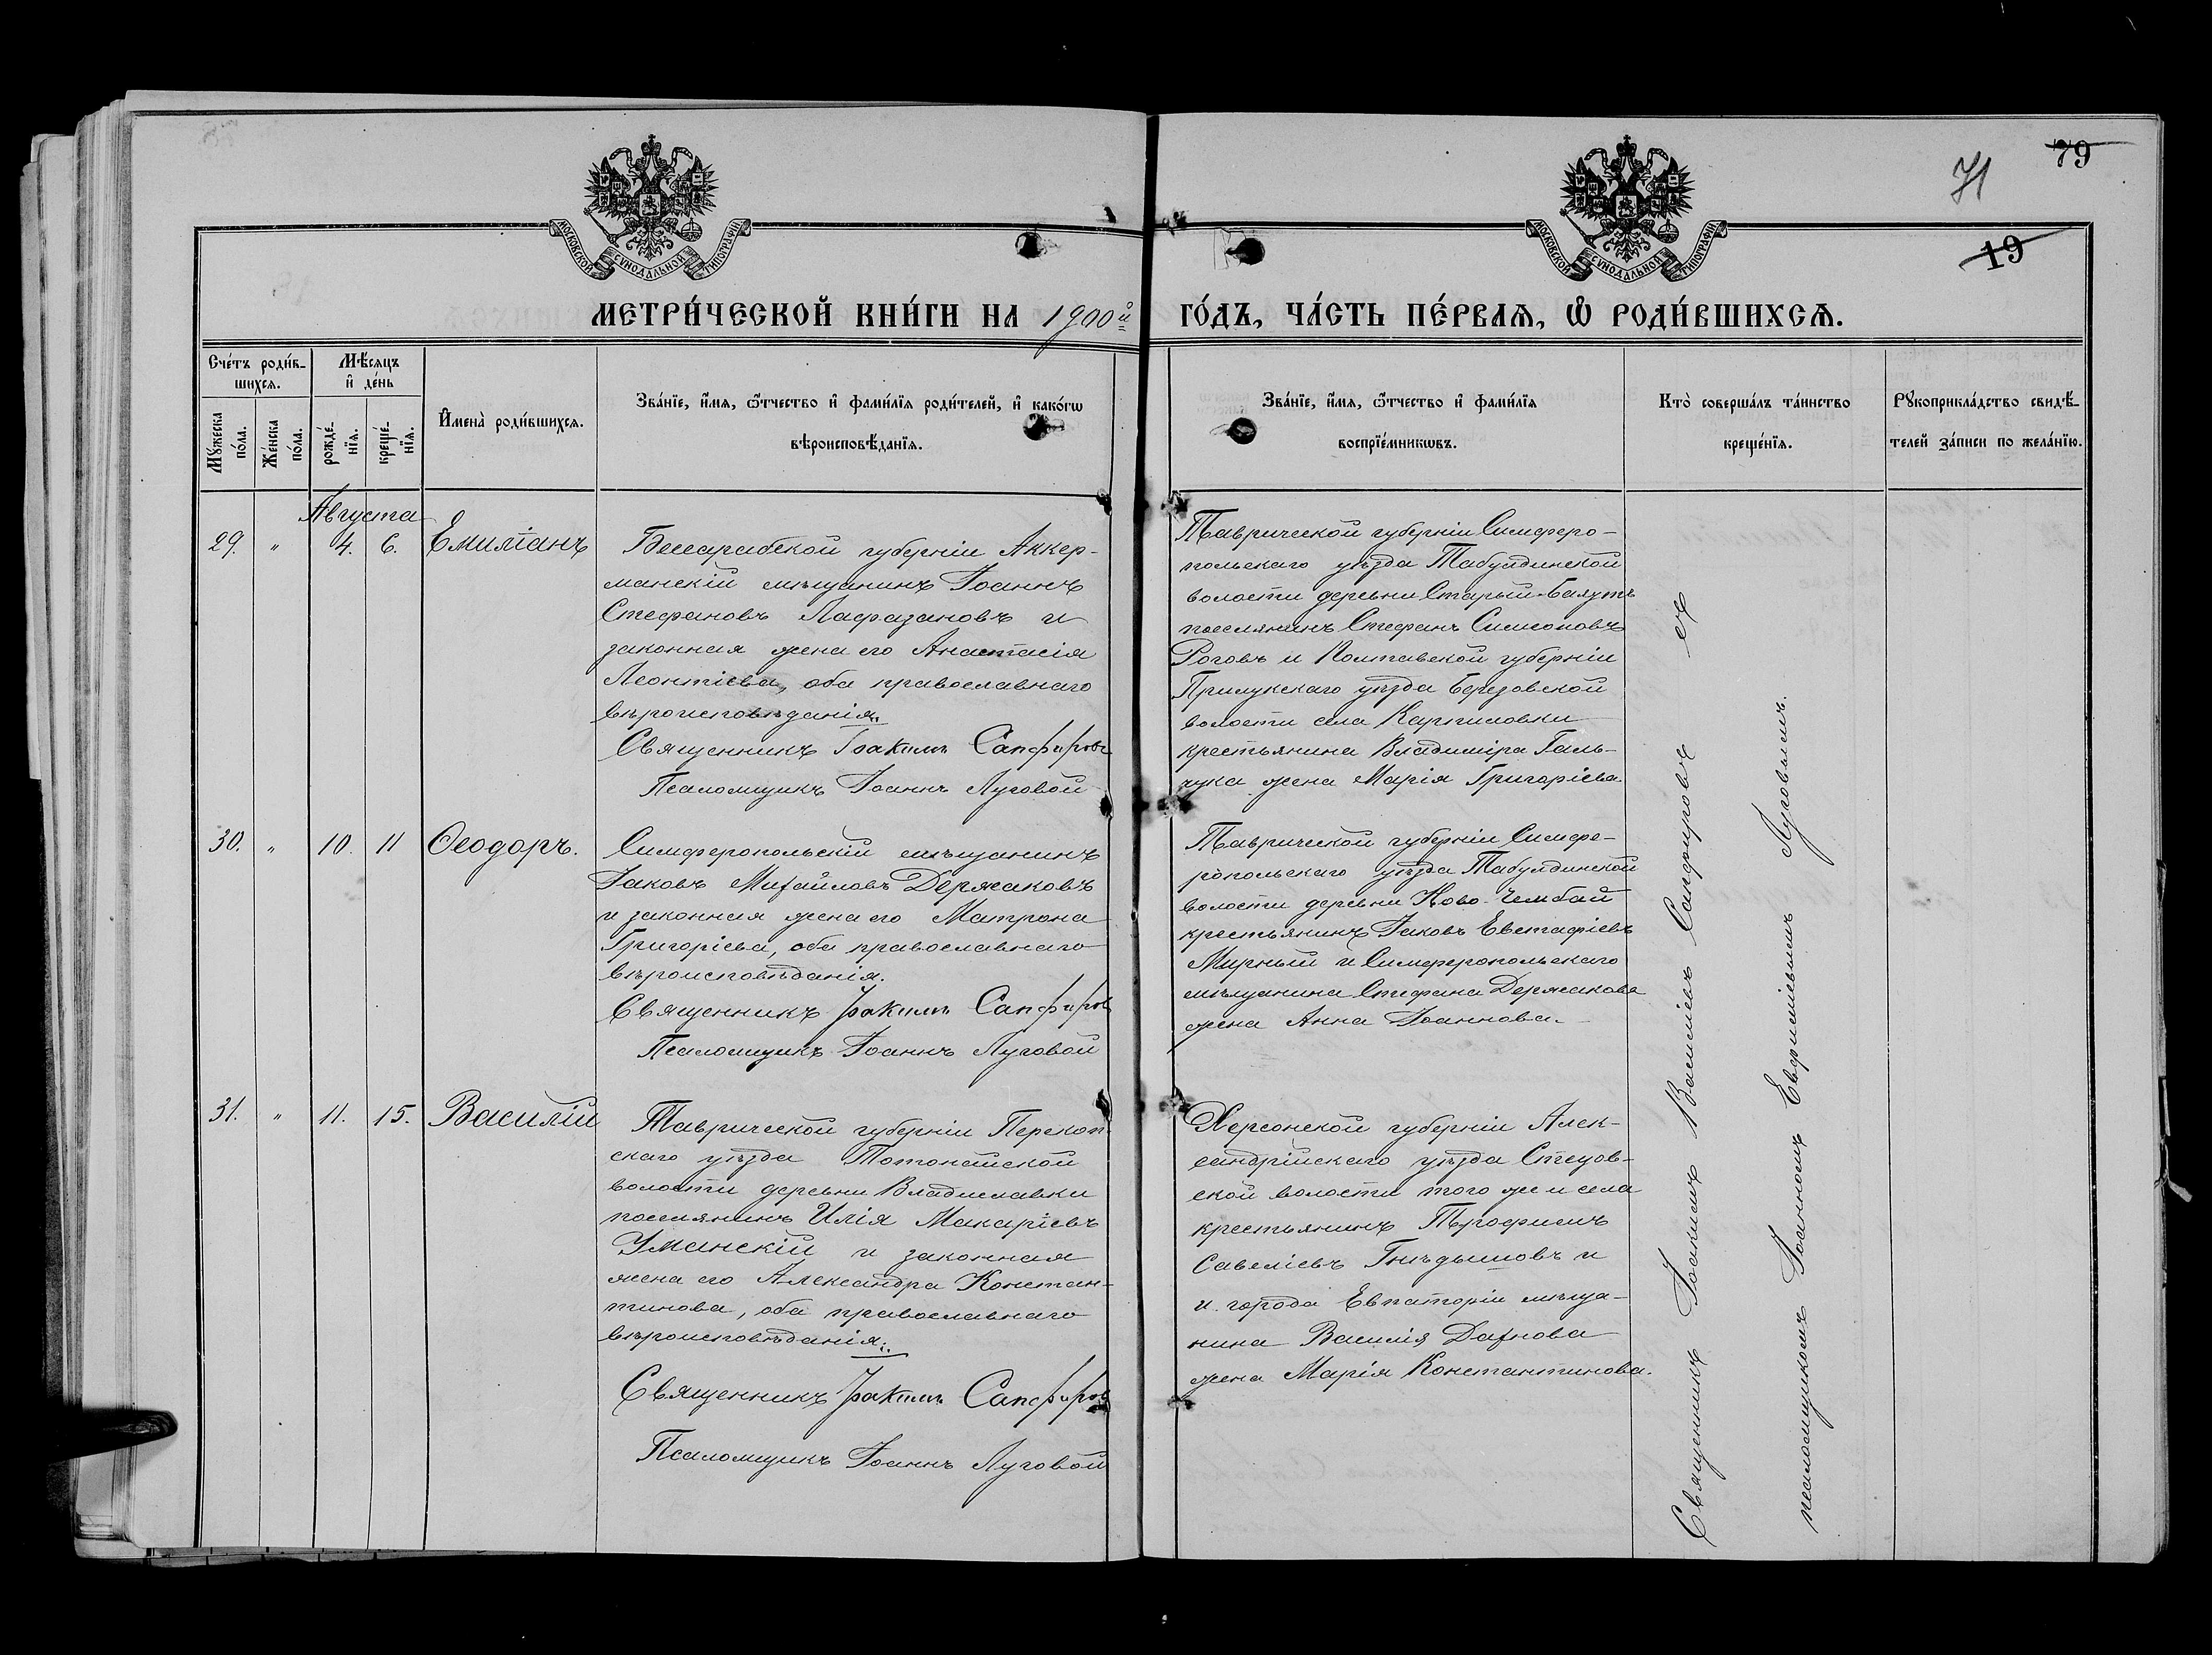 71
79
19
МОСКОВСКОЙ СѴНОДАЛЬНОЙ ТИПОГРАФІИ
МОСКОВСКОЙ СѴНОДАЛЬНОЙ ТИПОГРАФІИ
МЕТРИ́ЧЕСКОЙ КНИ́ГИ НА 1900й ГО́ДЪ, ЧА́СТЬ ПЕ́РВАѦ, Ѡ҆ РОДИ́ВШИХСѦ.
Сче́тъ роди́в-
шихсѧ.
Мꙋжеска по́ла.
Же́нска по́ла.
Мѣ́сѧцъ
и҆ де́нь
рожде́-
нїѧ.
креще́-
нїѧ.
И҆мена̀ роди́вшихсѧ.
Зва́нїе, и҆́мѧ, ѻ҆́тчество и҆ фами́лїѧ роди́телей, и҆ како́гѡ
вѣроисповѣ́данїѧ.
Зва́нїе, и҆́мѧ, ѻ҆́тчество и҆ фами́лїѧ
воспрїе́мникѡвъ.
Кто̀ соверша́лъ та́инство
креще́нїѧ.
Рꙋкоприкла́дство свидѣ́-
телей за́писи по жела́нїю.
Августа
29. " 4. 6. Емиліанъ
Бессарабской губерніи Аккер-
манскій мѣщанинъ Іоаннъ
Стефановъ Лафазановъ и
законная жена его Анастасія
Леонтіева, оба православнаго
вѣроисповѣданія.
Священникъ Іоакимъ Сапфировъ
Псаломщикъ Іоаннъ Луговой
Таврической губерніи Симферо-
польскаго уѣзда Табулдинской
волости деревни Старый-Баяутъ
поселянинъ Стефанъ Симеоновъ
Роговъ и Полтавской губерніи
Прилукскаго уѣзда Березовской
волости села Карпиловки
крестьянина Владиміра Галь-
чука жена Марія Григоріева.
30. " 10. 11 Ѳеодоръ.
Симферопольскій мѣщанинъ
Іаковъ Михайловъ Держаковъ
и законная жена его Матрона
Григоріева, оба православнаго
вѣроисповѣданія.
Священникъ Іоакимъ Сапфировъ
Псаломщикъ Іоаннъ Луговой
Таврической губерніи Симфе-
ропольскаго уѣзда Табулдинской
волости деревни Ново-Чембай
крестьянинъ Іаковъ Евстафіевъ
Мирный и Симферопольскаго
мѣщанина Стефана Держакова
жена Анна Іоаннова.
31. " 11. 15. Василій
Таврической губерніи Перекоп-
скаго уѣзда Тотонайской
волости деревни Владиславки
поселянинъ Илія Макаріевъ
Уманскій и законная
жена его Александра Констан-
тинова, оба православнаго
вѣроисповѣданія.
Священникъ Іоакимъ Сапфировъ
Псаломщикъ Іоаннъ Луговой
Херсонской губерніи Алек-
сандрійскаго уѣзда Стецов-
ской волости того же и села
крестьянинъ Трофимъ
Савеліевъ Гнѣдышовъ и
и города Евпаторіи мѣща-
нина Василія Дахнова
жена Марія Константинова.
Священникъ Іоакимъ Василіевъ Сапфировъ съ
псаломщикомъ Іоанномъ Евфиміевымъ Луговымъ.